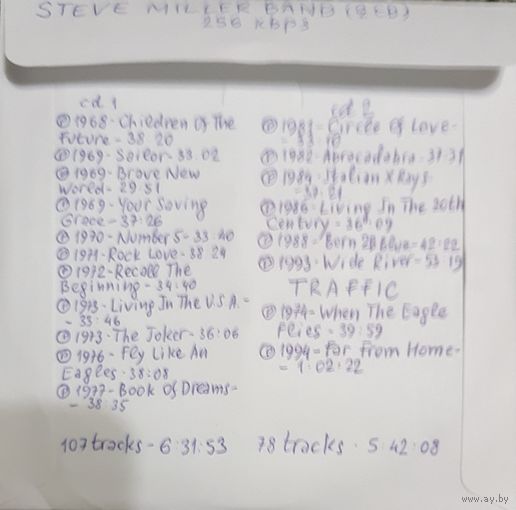 STEVE MILLER BAND (2CD)
256 kbps
cd 1
℗ 1968 - Children Of The
Future - 38:20
℗ 1969 - Seilor - 33:02
℗ 1969 - Brove New
World - 29:51
℗ 1969 - Your Soving
Grace - 37:26
℗ 1970 - Number 5 - 33:40
℗ 1971 - Rock Love - 38:24
℗ 1972 - Recall The
Beginning - 34:40
℗ 1973 - Living In The U.S.A. -
- 35:46
℗ 1973 - The Joker - 36:06
℗ 1976 - Fly Like An
Eagles - 38:08
℗ 1977 - Book Of Dreams -
- 38:35
107 tracks - 6:31:53
cd 2
℗ 1981 - Circle Of Love -
℗ 1982 - Abracadabra - 37:31
℗ 1984 - Italian X Rays
- 37:21
℗ 1986 - Living In The 20th
Century - 36:09
℗ 1988 - Born 2B Blue - 42:22
℗ 1993 - Wide River - 53:19
TRAFFIC
℗ 1974 - When The Eagle
Flies - 39:59
℗ 1994 - Far From Home -
- 1:02:22
78 tracks - 5:42:08
www.ay.by